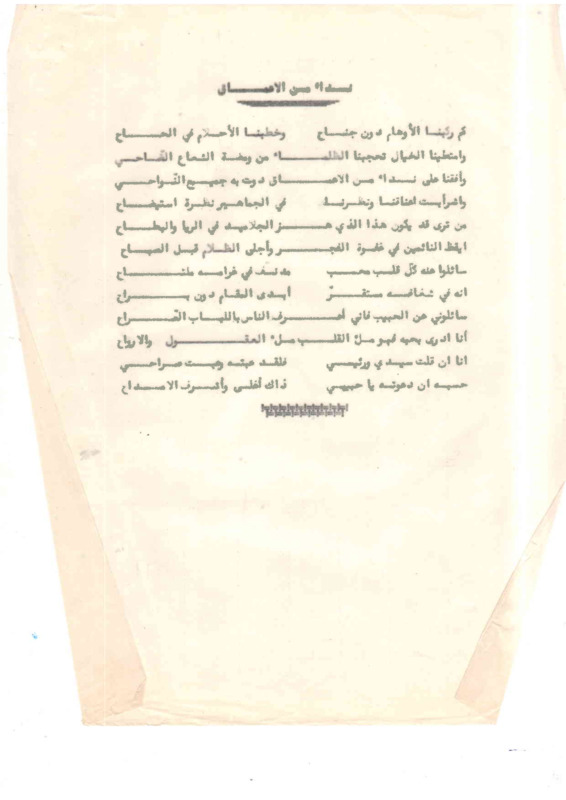 نـداء مـن الاعمـــاق
كم ركبنا الأوهام دون جناح وخطبنا الأحلام في الحـــاح
وامتطينا الخيال تحجبنا الظلمـــاء من ومضة الشعاع الضاحي
وأفقنا على نـداء مـن الاعمـــاق دوت به جميع النواحي
واشرأبت اعناقنا ونظرنـا في الجماهير نظرة استيضاح
من ترى قد يكون هذا الذي هـــز الجلاميد في الربا والبطاح
ايقظ النائمين في غفوة الفجـــر وأجلى الظلام قبل الصباح
سائلوا عنه كلّ قلب محـب مدنـف في غرامـه ملتـــاح
انه في شغافـه مستقـــرّ أبـدى المقام دون بـــراح
سائلوني عن الحبيب فاني أعـــرف الناس باللبـاب الصـــراح
أنا ادرى بحبه فهو ملْ القلـــب مـلْ العقـــول والارواح
انا ان قلت سيـدي ورئيسي فلقـد عبتـه وعبـت صراحـي
حسبه ان دعوتـه يا حبيبي ذاك أغلـى وأشـرف الامـداح